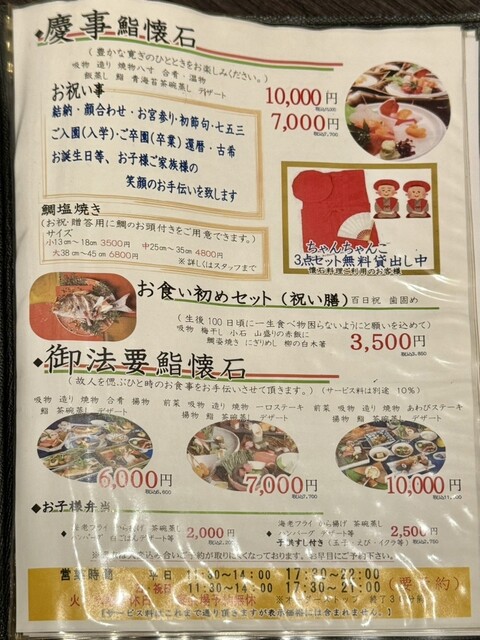 ◆慶事鮨懐石
(豊かな寛ぎのひとときをお楽しみください。)
吸物 造り 焼物八寸 合肴・温物
飯蒸し 鮨 青海苔茶碗蒸し デザート
10,000円
7,000円
税込7,700
お祝い事
結納・顔合わせ・お宮参り・初節句・七五三
ご入園(入学)・ご卒園(卒業)還暦・古希
お誕生日等、お子様ご家族様の
笑顔のお手伝いを致します
鯛塩焼き
(お祝・贈答用に鯛のお頭付きをご用意できます。)
サイズ
小13㎝～18㎝ 3500円 中25㎝～35㎝ 4800円
大38㎝～45㎝ 6800円 ※詳しくはスタッフまで
ちゃんちゃんこ
3点セット無料貸出し中
懐石料理ご利用のお客様
お食い初めセット(祝い膳)百日祝 歯固め
(生後100日頃に一生食べ物困らないようにと願いを込めて)
吸物 梅干し 小石 山盛りの赤飯に
鯛姿焼き にぎりめし 柳の白木箸
3,500円
◆御法要鮨懐石
(故人を偲ぶひと時のお食事をお手伝いさせて頂きます。)(サービス料は別途 10%)
吸物 造り 焼物 合肴 揚物
鮨 茶碗蒸し デザート
6,000円
税込6,600
前菜 吸物 造り 焼物 一口ステーキ
揚物 鮨 茶碗蒸し デザート
7,000円
税込7,700
前菜 吸物 造り 焼物 あわびステーキ
揚物 鮨 茶碗蒸し デザート
10,000円
税込11,000
◆お子様弁当
海老フライ から揚げ 茶碗蒸し
ハンバーグ 白ごはんデザート等
2,000円
税込2,200
海老フライ から揚げ 茶碗蒸し
ハンバーグ デザート等
子供すし付き(玉子・えび・イクラ等)
2,500円
税込2,750
ご予約が取りにくくなっております。お早目にご予約下さい。
営業時間 平日 11:30～14:00 17:30～22:00 (要予約)
祝日 11:30～14:00 17:30～21:00
【サービス料はこれまで通り頂きますが表示価格には含まれません。】